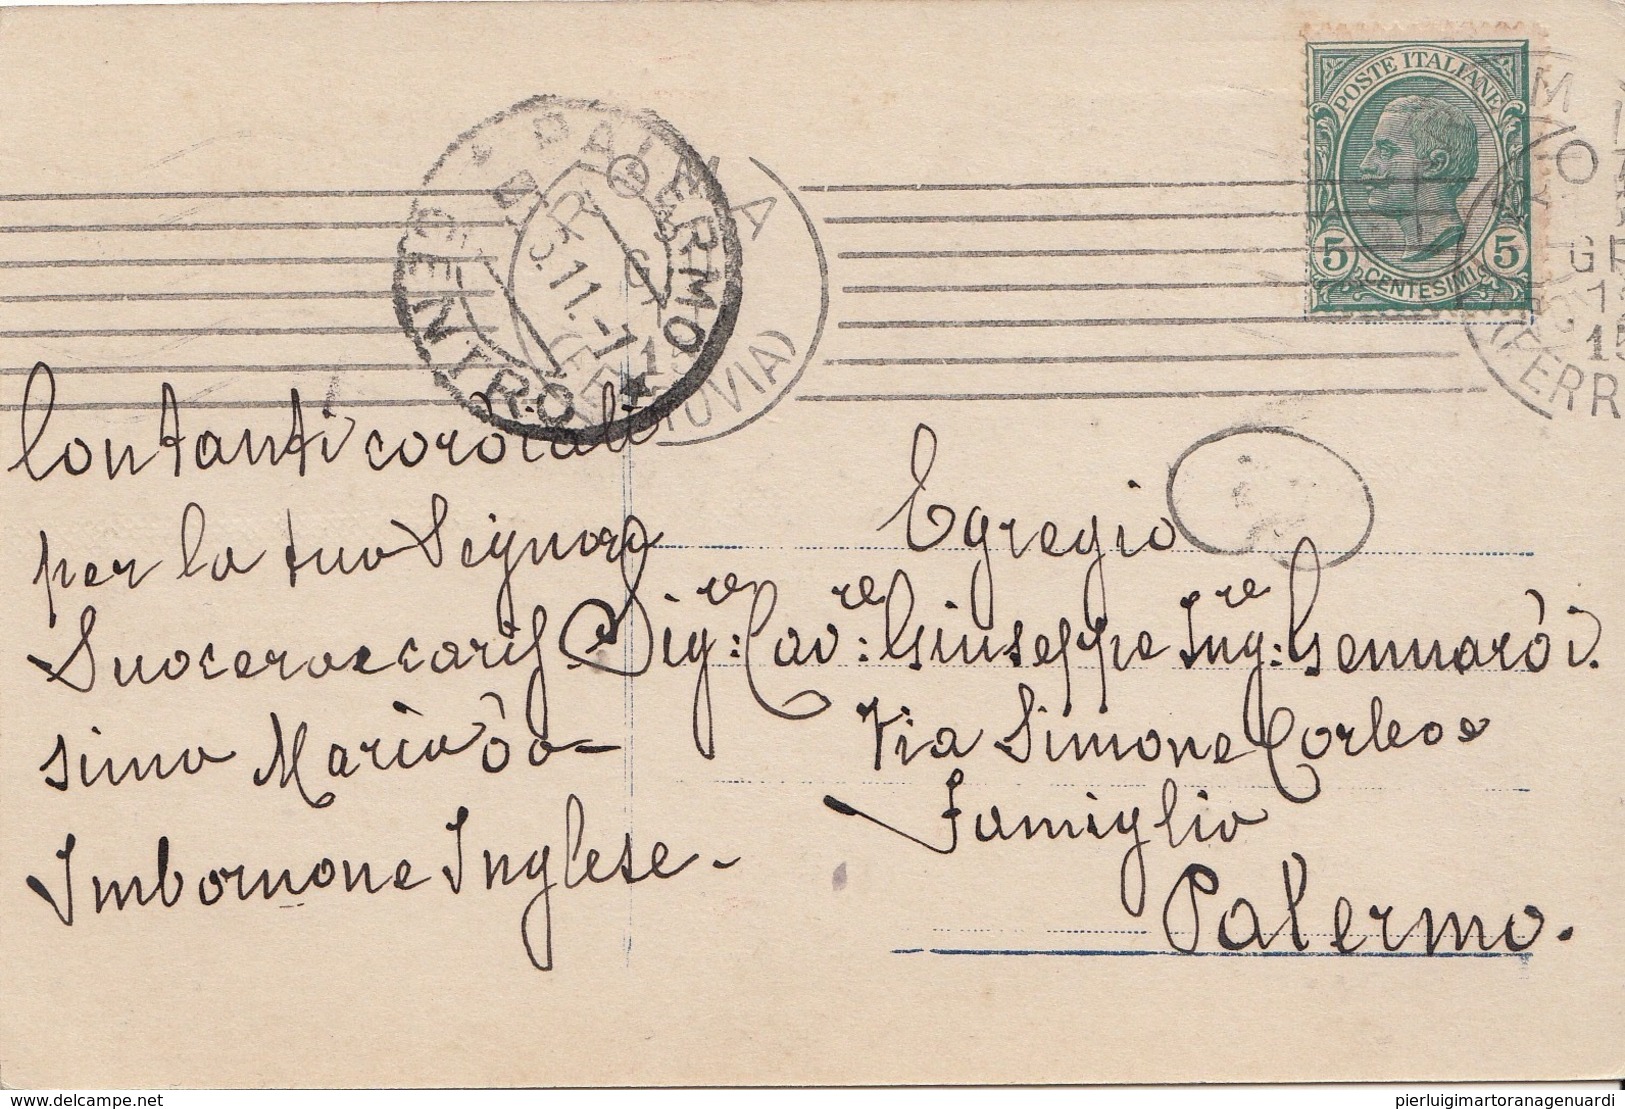 POSTE ITALIANE
5 CENTESIMI 5
PALERMO
CENTRO
5.11.-7
ROMA
(FERROVIA)
per la tua Signora
Suocera e caris
simo Mario
Imbornone Inglese-
Egregio
Sig:re Cav:re Giuseppe Ing:re Gennardi.
Via Simone Corleo e
Famiglia
Palermo.
www.delcampe.net
pierluigimartoranagenuardi